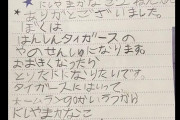 ありがとうございました。
ぼくは
はんしんタイガースの
やのせんしゅになります。
おおきくなったら
とりたにになりたいです。
タイガースにはいって、
ホームラン
にしやまかなこ